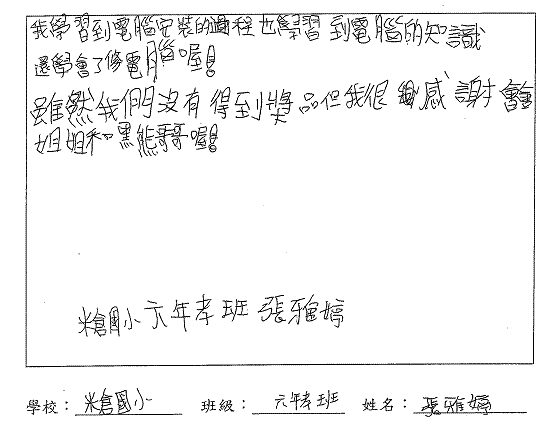 我學習到電腦安裝的過程也學習到電腦的知識
還學會了修電腦喔!
雖然我們沒有得到獎品但我很感謝
姐姐和黑熊哥哥喔!
米倉國小六年孝班 張雅婷
學校：米倉國小 班級：六年孝班 姓名：張雅婷